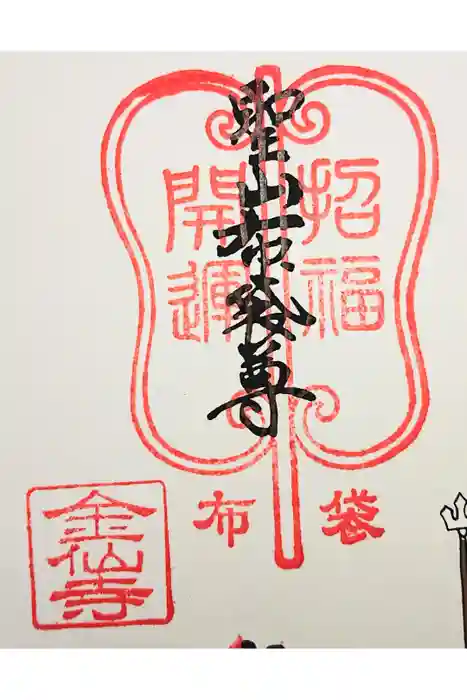 聖山布袋尊
招福
開運
布袋
金仙寺